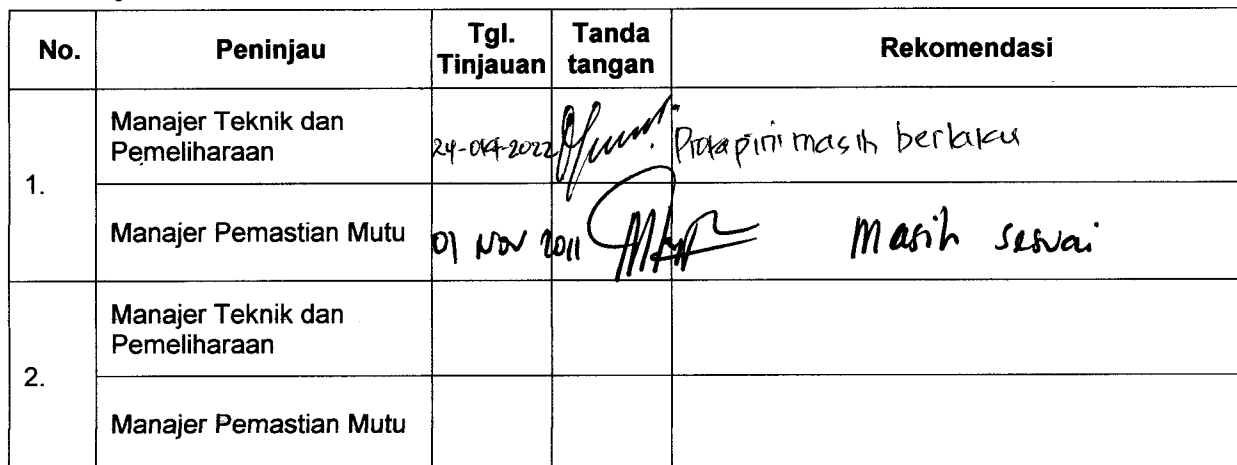 No. Peninjau Tgl. Tinjauan Tanda tangan Rekomendasi
1.
Manajer Teknik dan Pemeliharaan 24-OKT-2022 Protap ini masih berlaku
Manajer Pemastian Mutu 01 NOV 2011 Masih sesuai
2.
Manajer Teknik dan Pemeliharaan
Manajer Pemastian Mutu